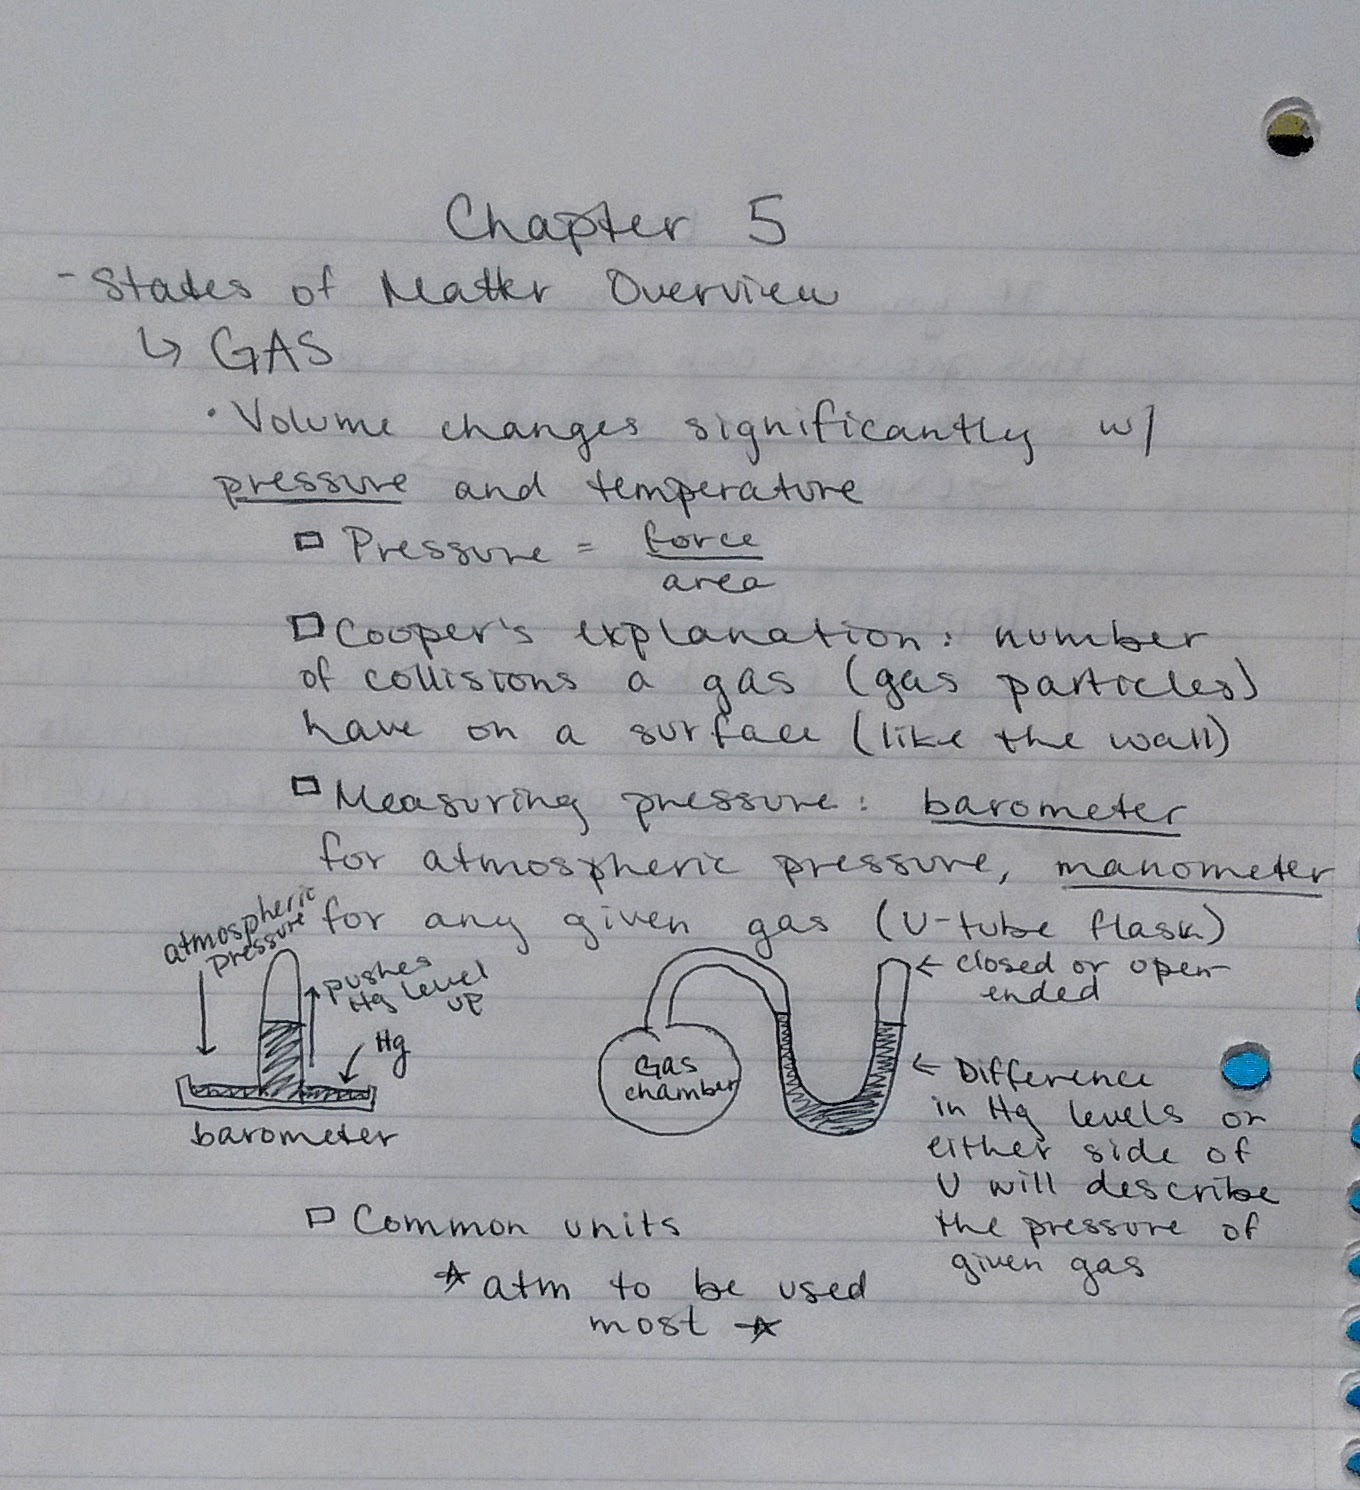 Chapter 5
- States of Matter Overview
↳ GAS
• Volume changes significantly w/
pressure and temperature
□ Pressure = force
area
□ Cooper's explanation: number
of collisions a gas (gas particles)
have on a surface (like the wall)
□ Measuring pressure: barometer
for atmospheric pressure, manometer
for any given gas (U-tube flask)
atmospheric
pressure
pushes
Hg level
up
Hg
barometer
Gas
chamber
← closed or open-
ended
← Difference
in Hg levels on
either side of
U will describe
the pressure of
given gas
□ Common units
☆ atm to be used
most ☆